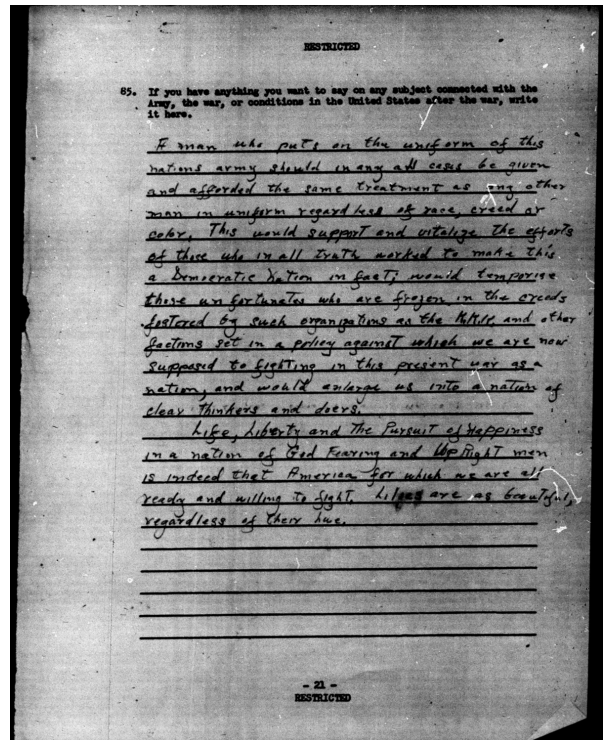 RESTRICTED
85. If you have anything you want to say on any subject connected with the
Army, the war, or conditions in the United States after the war, write
it here.
A man who puts on the uniform of this
nations army should in any all cases be given
and afforded the same treatment as any other
man in uniform regardless of race, creed or
color. This would support and vitalize the efforts
of those who in all truth worked to make this
a Democratic Nation in fact; would temporise
those unfortunates who are frozen in the creeds
fostered by such organizations as the K.K.K. and other
factions set in a policy against which we are now
supposed to fighting in this present war as a
nation, and would enlarge us into a nation of
clear thinkers and doers.
Life, Liberty and The Pursuit of Happiness
in a nation of God Fearing and UpRight men
is indeed that America for which we are all
ready and willing to fight. Lilacs are as beautiful,
regardless of their hue.
- 21 -
RESTRICTED